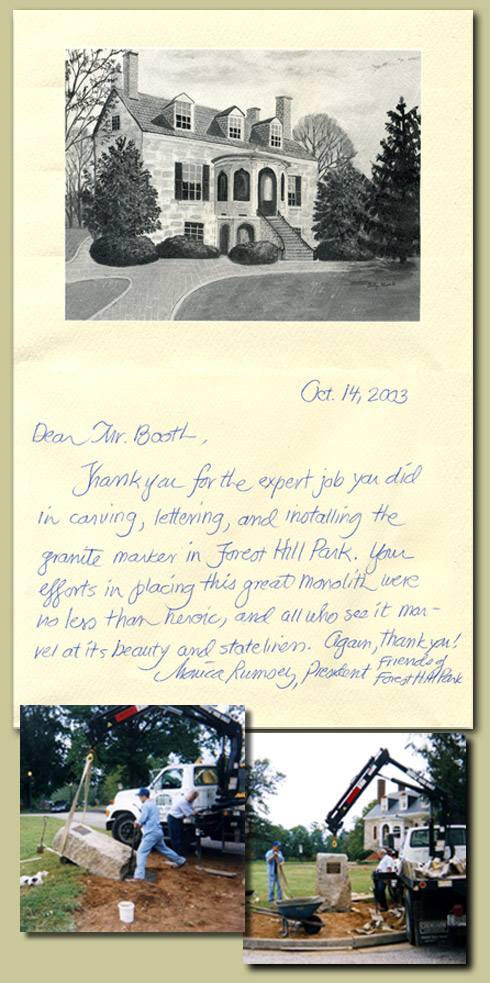 Oct. 14, 2003
Dear Mr. Booth,
Thank you for the expert job you did
in carving, lettering, and installing the
granite marker in Forest Hill Park. Your
efforts in placing this great monolith were
no less than heroic, and all who see it mar-
vel at its beauty and stateliness. Again, thank you!
Monica Rumsey, President Friends of
Forest Hill Park